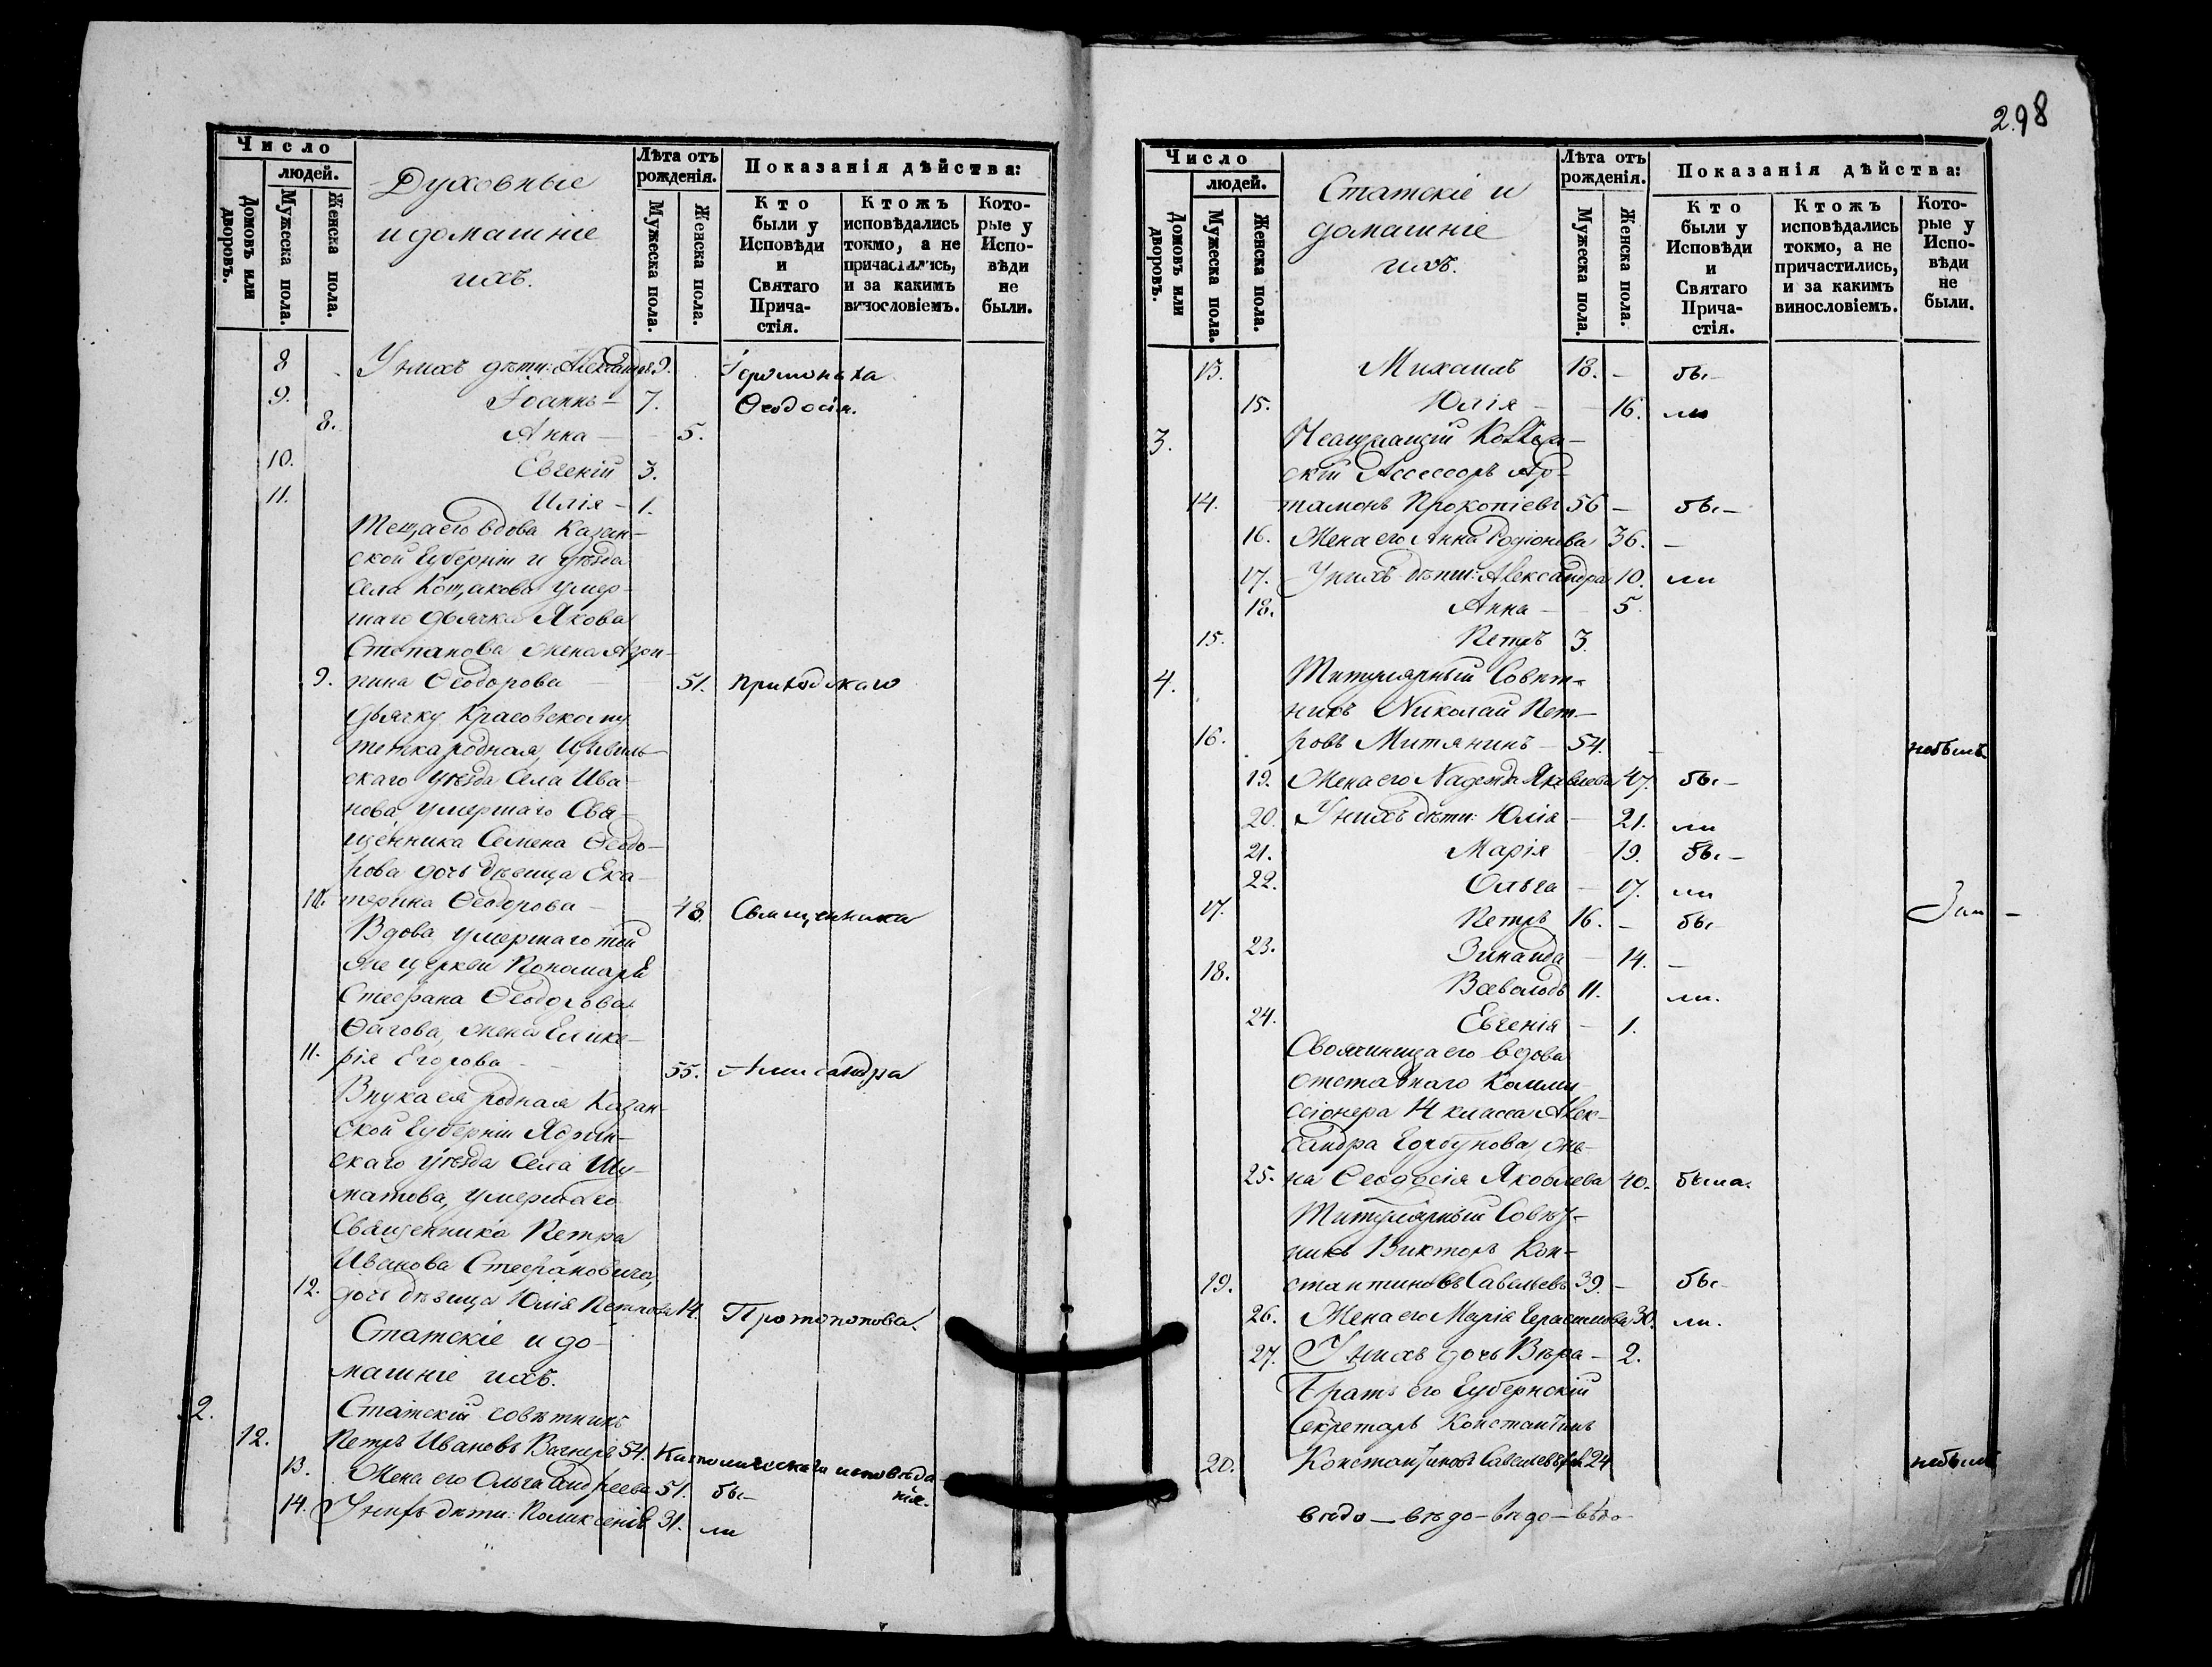 298
Число
людей.
Домовъ или дворовъ.
Мужеска пола.
Женска пола.
Духовные
и домашніе
ихъ.
Лѣта отъ рожденія.
Мужеска пола.
Женска пола.
Показанія дѣйства:
Кто были у Исповѣди и Святаго Причастія.
Ктожъ исповѣдались токмо, а не причастились, и за какимъ винословіемъ.
Которые у Исповѣди не были.
8 У нихъ дѣти: Александръ 9. Іеромонаха
9. Іоаннъ – 7. Ѳеодосія.
8. Анна – 5.
10. Евгеній 3.
11. Илія – 1.
Теща его вдова Казан-
ской Губерніи и уѣзда
села умер-
шаго дьячка Якова
Степанова жена Агри-
9. пина Ѳеодорова 51. приходскаго
Дьячку Красовскому
тетка родная, Цывиль-
скаго уѣзда Села Ива-
нова умершаго Свя-
щенника Семена Ѳеодо-
рова дочь дѣвица Ека-
10. терина Ѳеодорова – 48 Священника
Вдова умершаго той
же церкви Пономаря
Стефана Ѳеодорова
жена Глике-
11. рія Егорова – 55. Александра
Внука ея родная Казан-
ской Губерніи Ядрин-
скаго уѣзда Села Шу-
матова, умершаго
Священника Петра
Иванова Стефановича,
12. дочь дѣвица Юлія Петрова 14. Протопопова.
Статскіе и до-
машніе ихъ.
2. Статскій совѣтникъ
12. Петръ Ивановъ Вагнеръ 54. Католическаго исповѣда-
нія.
13. Жена его Ольга Андреева 51. бы-
14. У нихъ дѣти: Поликсенія 31. ли
Число
людей.
Домовъ или дворовъ.
Мужеска пола.
Женска пола.
Статскіе и
домашніе
ихъ.
Лѣта отъ рожденія.
Мужеска пола.
Женска пола.
Показанія дѣйства:
Кто были у Исповѣди и Святаго Причастія.
Ктожъ исповѣдались токмо, а не причастились, и за какимъ винословіемъ.
Которые у Исповѣди не были.
13. Михаилъ 18. – бы-
15. Юлія – 16. ли
3. Коллеж-
скій Ассессоръ Ар-
14. тамонъ Прокопіевъ 56 – бы-
16. Жена его Анна Родіонова 36. –
17. У нихъ дѣти: Александра 10. ли
18. Анна – 5.
15. Петръ 3.
4. Титулярный Совѣт-
никъ Николай Пет-
16. ровъ Митянинъ – 54. – небылъ
19. Жена его Надежда Яковлева 47. бы-
20. У нихъ дѣти: Юлія – 21. ли
21. Марія – 19. бы-
22. Ольга – 17. ли
17. Петръ 16. – бы-
23. Зинаида – 14. –
18. Всеволодъ 11. ли.
24. Евгенія – 1.
Свояченица его вдова
отставнаго Комми-
сіонера 14 класса Алек-
сандра Горбунова, же-
25. на Ѳеодосія Яковлева 40. была.
Титулярный Совѣт-
никъ Викторъ Кон-
19. стантиновъ Савельевъ 39. – бы-
26. Жена его Марія Герасимова 30. ли.
27. У нихъ дочь Вѣра – 2.
Братъ его Губернскій
Секретарь Константинъ
20. Константиновъ Савельевъ 24 небылъ
вѣдо – вѣдо – вѣдо – вѣдо